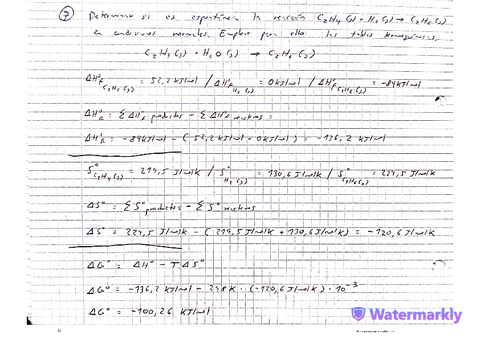 7 Determinar si es espontánea la reacción C₂H₄(g) + H₂(g) → C₂H₆(g)
en condiciones normales. Emplear para ello las tablas termoquímicas.
C₂H₄(g) + H₂O(g) → C₂H₆(g)
ΔH°f C₂H₄(g) = 52,2 kJ/mol / ΔH°f H₂(g) = 0 kJ/mol / ΔH°f C₂H₆(g) = -84 kJ/mol
ΔH°R = Σ ΔH°f productos - Σ ΔH°f reactivos =
ΔH°R = -84 kJ/mol - (52,2 kJ/mol - 0 kJ/mol) = -136,2 kJ/mol
S° C₂H₄(g) = 219,5 J/mol K / S° H₂(g) = 130,6 J/mol K / S° C₂H₆(g) = 229,5 J/mol K
ΔS° = Σ S° productos - Σ S° reactivos
ΔS° = 229,5 J/mol K - (219,5 J/mol K + 130,6 J/mol K) = -120,6 J/mol K
ΔG° = ΔH° - TΔS°
ΔG° = -136,2 kJ/mol - 298 K · (-120,6 J/mol K) · 10⁻³
ΔG° = -100,26 kJ/mol
Watermarkly